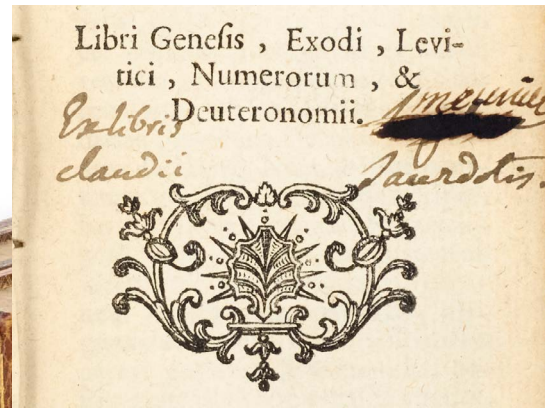 Libri Geneſis , Exodi , Levi-
tici , Numerorum , &
Deuteronomii.
Ex libris
claudii
Sacerdotis.